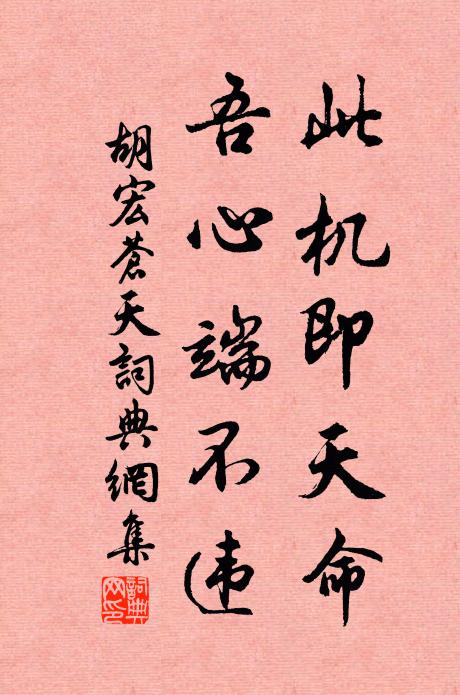 此机即天命
吾心端不违
胡宏蒼天詞典網集
詞典网印